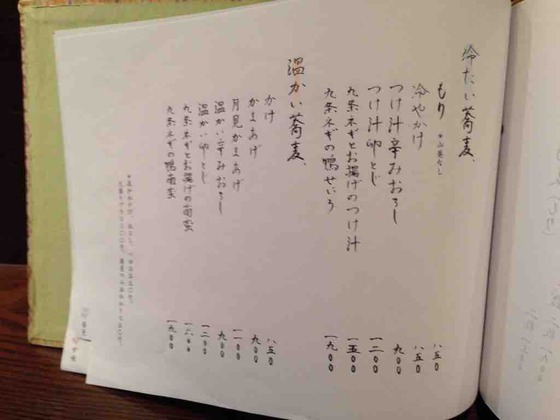 冷たい蕎麦、
もり ※山葵なし 八五〇
冷やかけ 八五〇
つけ汁辛みおろし 九〇〇
つけ汁卵とじ 一二〇〇
九条ネギとお揚げのつけ汁 一五〇〇
九条ネギの鴨せいろ 一九〇〇
温かい蕎麦、
かけ 八五〇
かまあげ 九〇〇
月見かまあげ 一一〇〇
温かい辛みおろし 九〇〇
温かい卵とじ 一二〇〇
九条ネギとお揚げの
九条ネギの鴨南蛮 一九〇〇